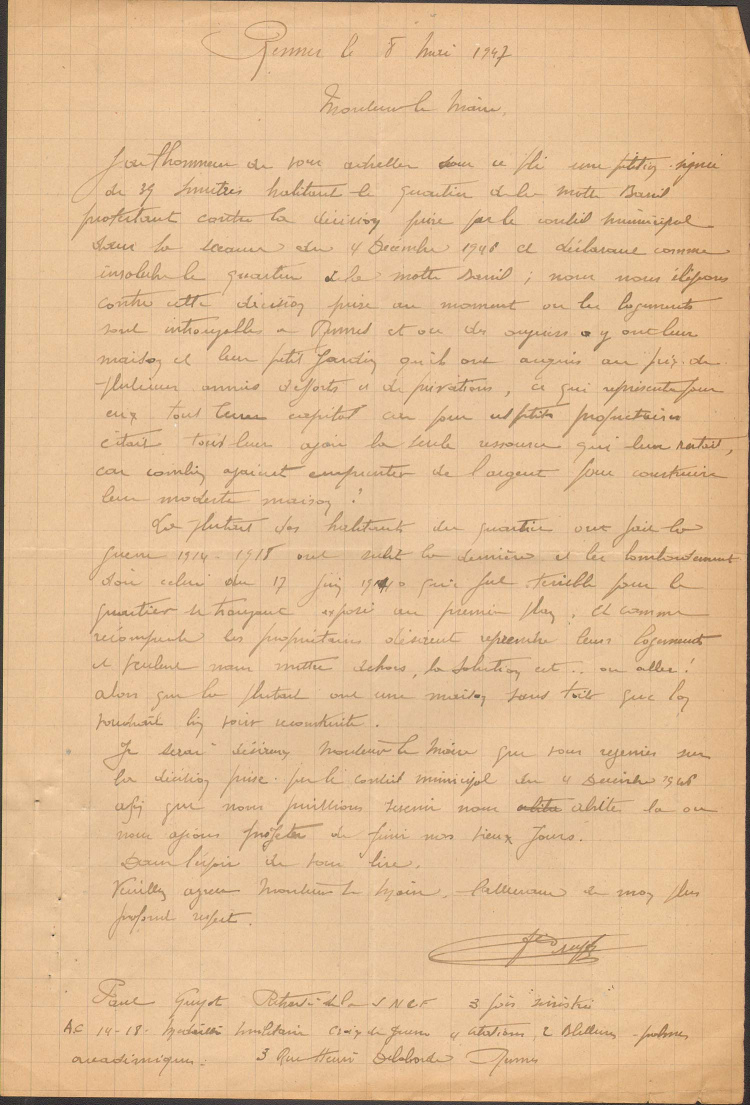 Rennes le 8 Mars 1947
Monsieur le Maire,
J'ai l'honneur de vous adresser sous ce pli une pétition signée
de 39 sinistrés habitant le quartier de la Motte Baril
protestant contre la décision prise par le conseil municipal
dans la séance du 4 Décembre 1946 et déclarant comme
insalubre le quartier de la Motte Baril ; nous nous élevons
contre cette décision prise au moment ou les logements
sont introuvables a Rennes et ou des ouvriers y ont leur
maison et leur petit Jardin qu'ils ont acquis au prix de
plusieurs années d'efforts et de privations, ce qui représente pour
eux tout leur capital car pour ces petits propriétaires
c'était tout leur avoir la seule ressource qui leur restait,
car combien avaient emprunter de l'argent pour construire
leur modeste maison !
La plupart des habitants du quartier ont fait la
guerre 1914-1918 ont subit la dernière et les bombardement
dont celui du 17 Juin 1940 qui fut terrible pour le
quartier se trouvant exposé au premier plan. Et comme
récompense les propriétaires désirent reprendre leurs logements
et veulent nous mettre dehors, la solution est .. ou aller !
alors que la plupart ont une maison sans toit que l'on
voudrait bien voir reconstruite.
Je serai désireux Monsieur le Maire que vous reveniez sur
la décision prise par le conseil municipal du 4 Décembre 1946
afin que nous puissions revenir nous abriter la ou
nous avions projeter de finir nos vieux Jours.
Dans l'espoir de vous lire,
Veuillez agréer Monsieur le Maire l'assurance de mon plus
profond respect.
Paul Guyot Retraité de la SNCF 3 fois "sinistré"
A.C 14-18- Médaille Militaire Croix de guerre 4 citations, 2 Blessures - palmes
académiques - 3 Rue Henri Delaborde Rennes